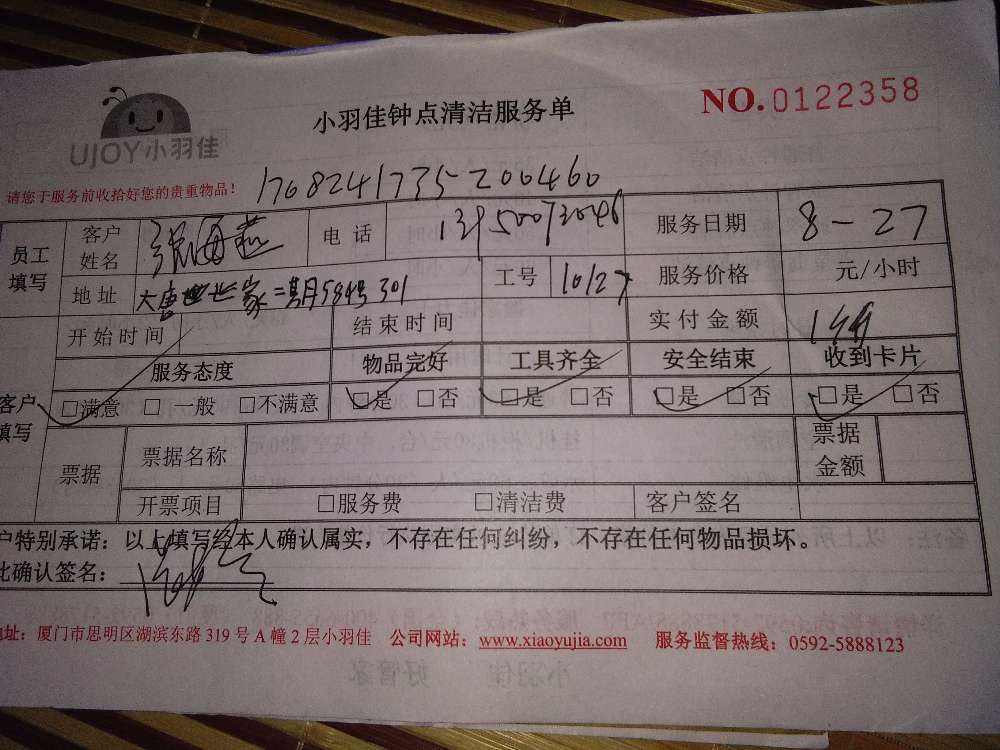 UJOY小羽佳
小羽佳钟点清洁服务单
NO.0122358
请您于服务前收拾好您的贵重物品!
1708241735200460
员工填写 客户姓名 张海燕 电话 13950073046 服务日期 8-27
地址 大唐世家二期584号301 工号 10127 服务价格 元/小时
开始时间 结束时间 实付金额
服务态度 物品完好 工具齐全 安全结束 收到卡片
客户填写 □满意 □一般 □不满意 □是 □否 □是 □否 □是 □否 □是 □否
票据 票据名称 票据金额
开票项目 □服务费 □清洁费 客户签名
户特别承诺:以上填写经本人确认属实,不存在任何纠纷,不存在任何物品损坏。
此确认签名:
地址:厦门市思明区湖滨东路319号A幢2层小羽佳 公司网站:www.xiaoyujia.com 服务监督热线:0592-5888123